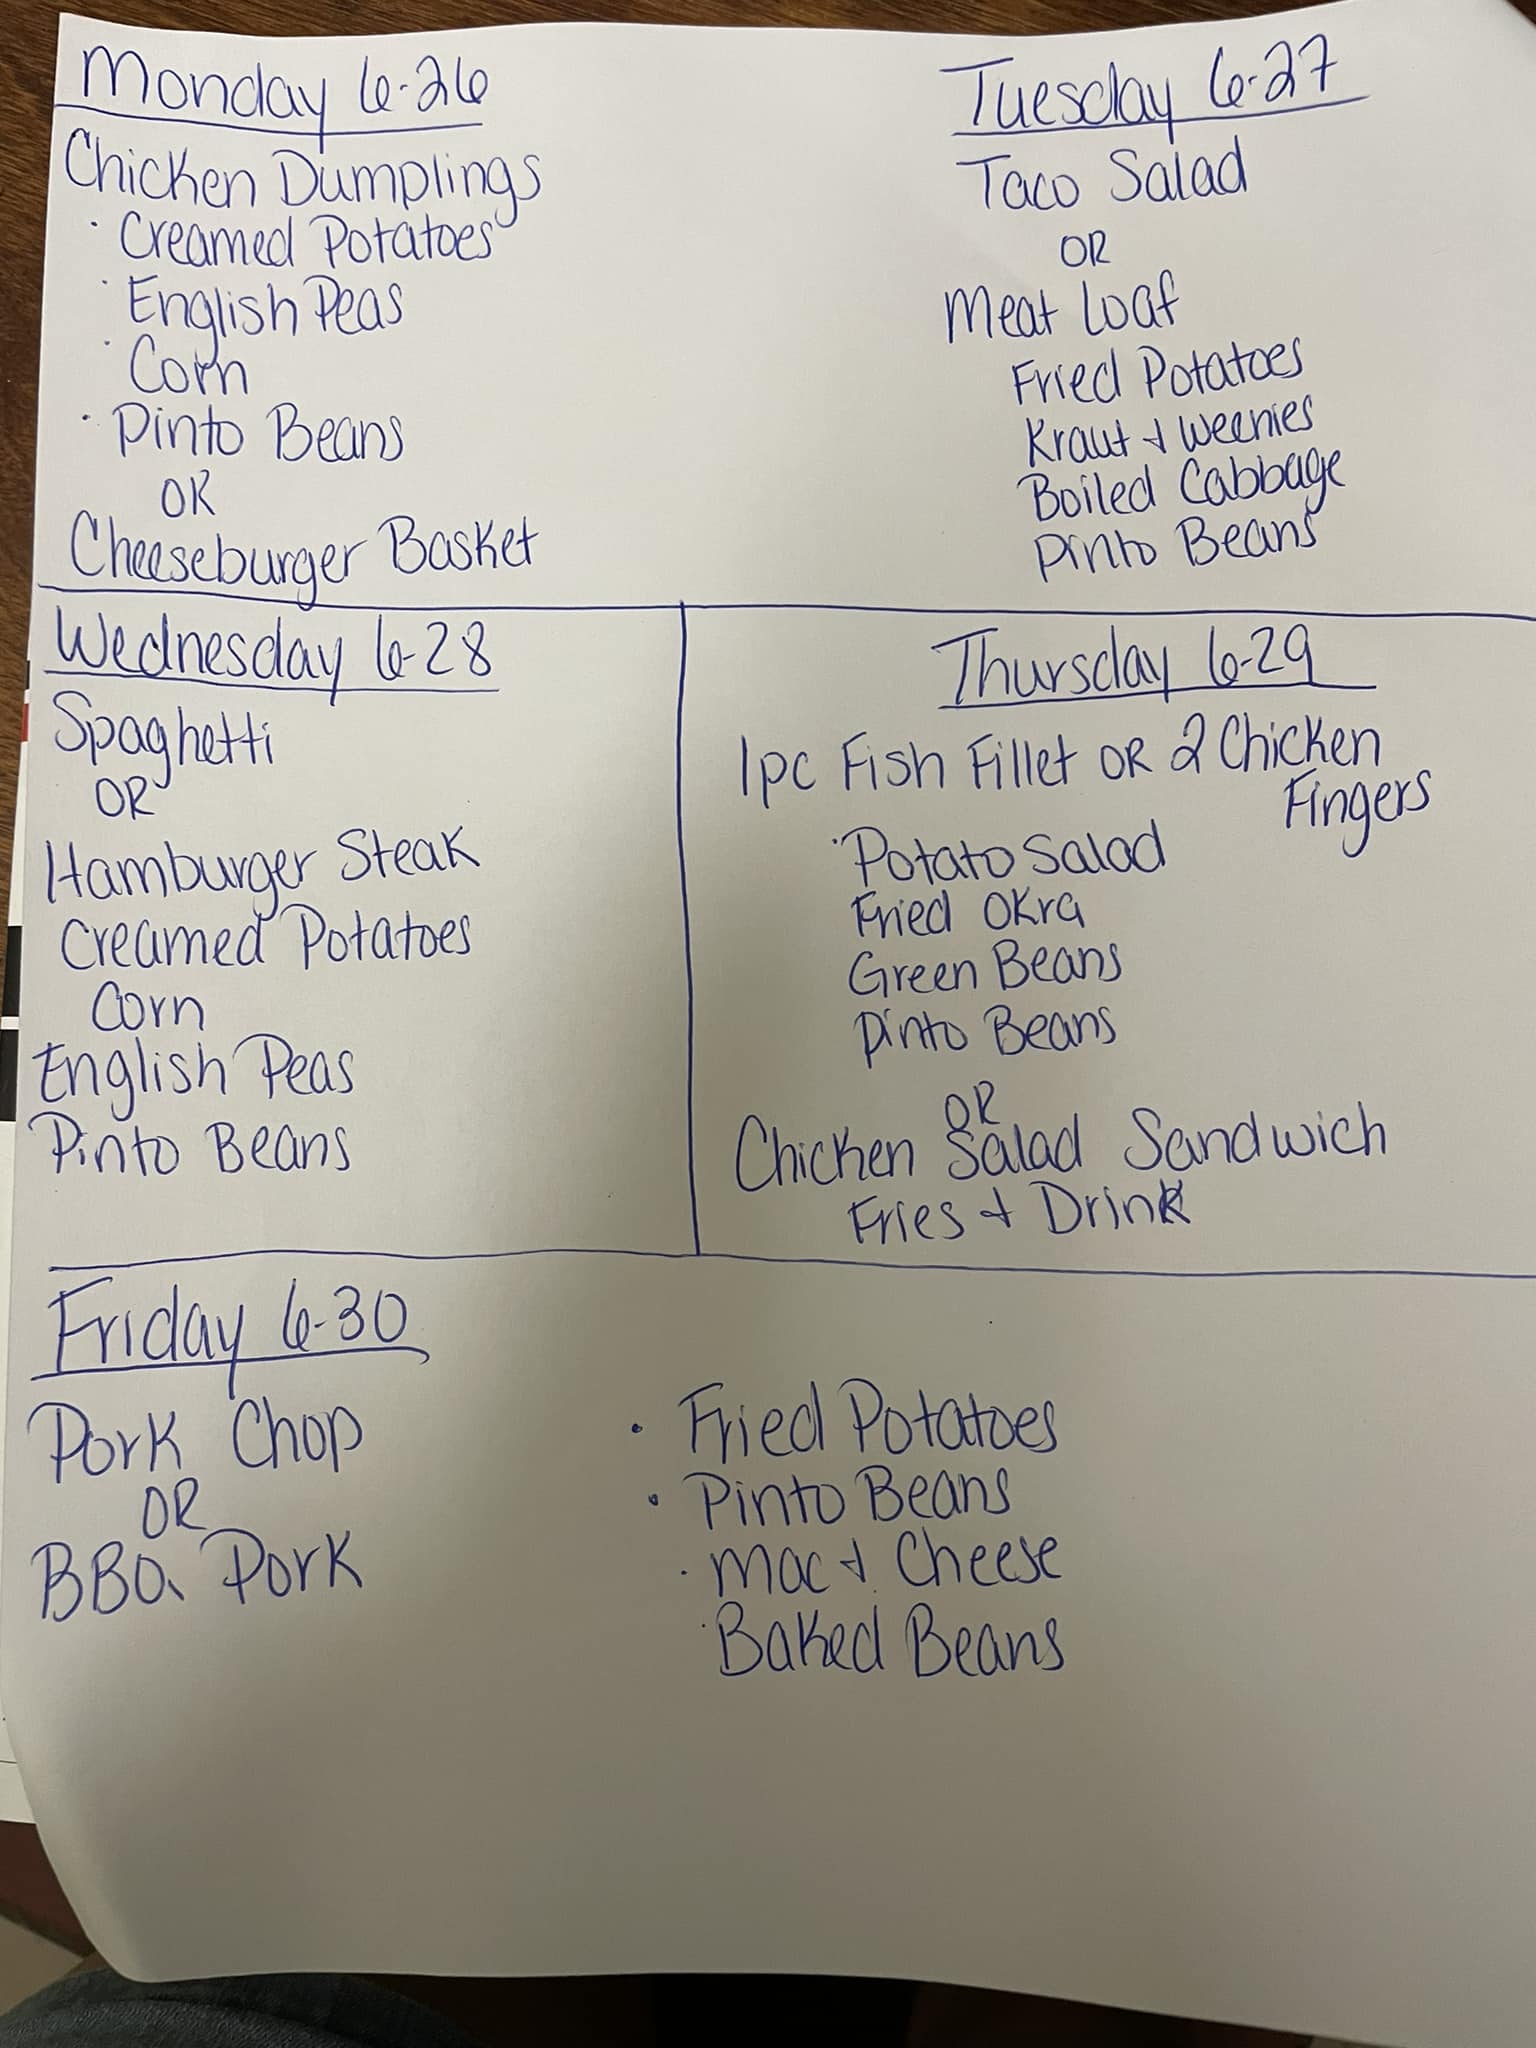 Monday 6-26
Chicken Dumplings
· Creamed Potatoes
· English Peas
· Corn
· Pinto Beans
OR
Cheeseburger Basket
Tuesday 6-27
Taco Salad
OR
Meat Loaf
Fried Potatoes
Kraut & Weenies
Boiled Cabbage
Pinto Beans
Wednesday 6-28
Spaghetti
OR
Hamburger Steak
Creamed Potatoes
Corn
English Peas
Pinto Beans
Thursday 6-29
1pc Fish Fillet OR 2 Chicken
Fingers
· Potato Salad
Fried Okra
Green Beans
Pinto Beans
OR
Chicken Salad Sandwich
Fries & Drink
Friday 6-30
Pork Chop
OR
BBQ Pork
· Fried Potatoes
· Pinto Beans
· Mac & Cheese
· Baked Beans